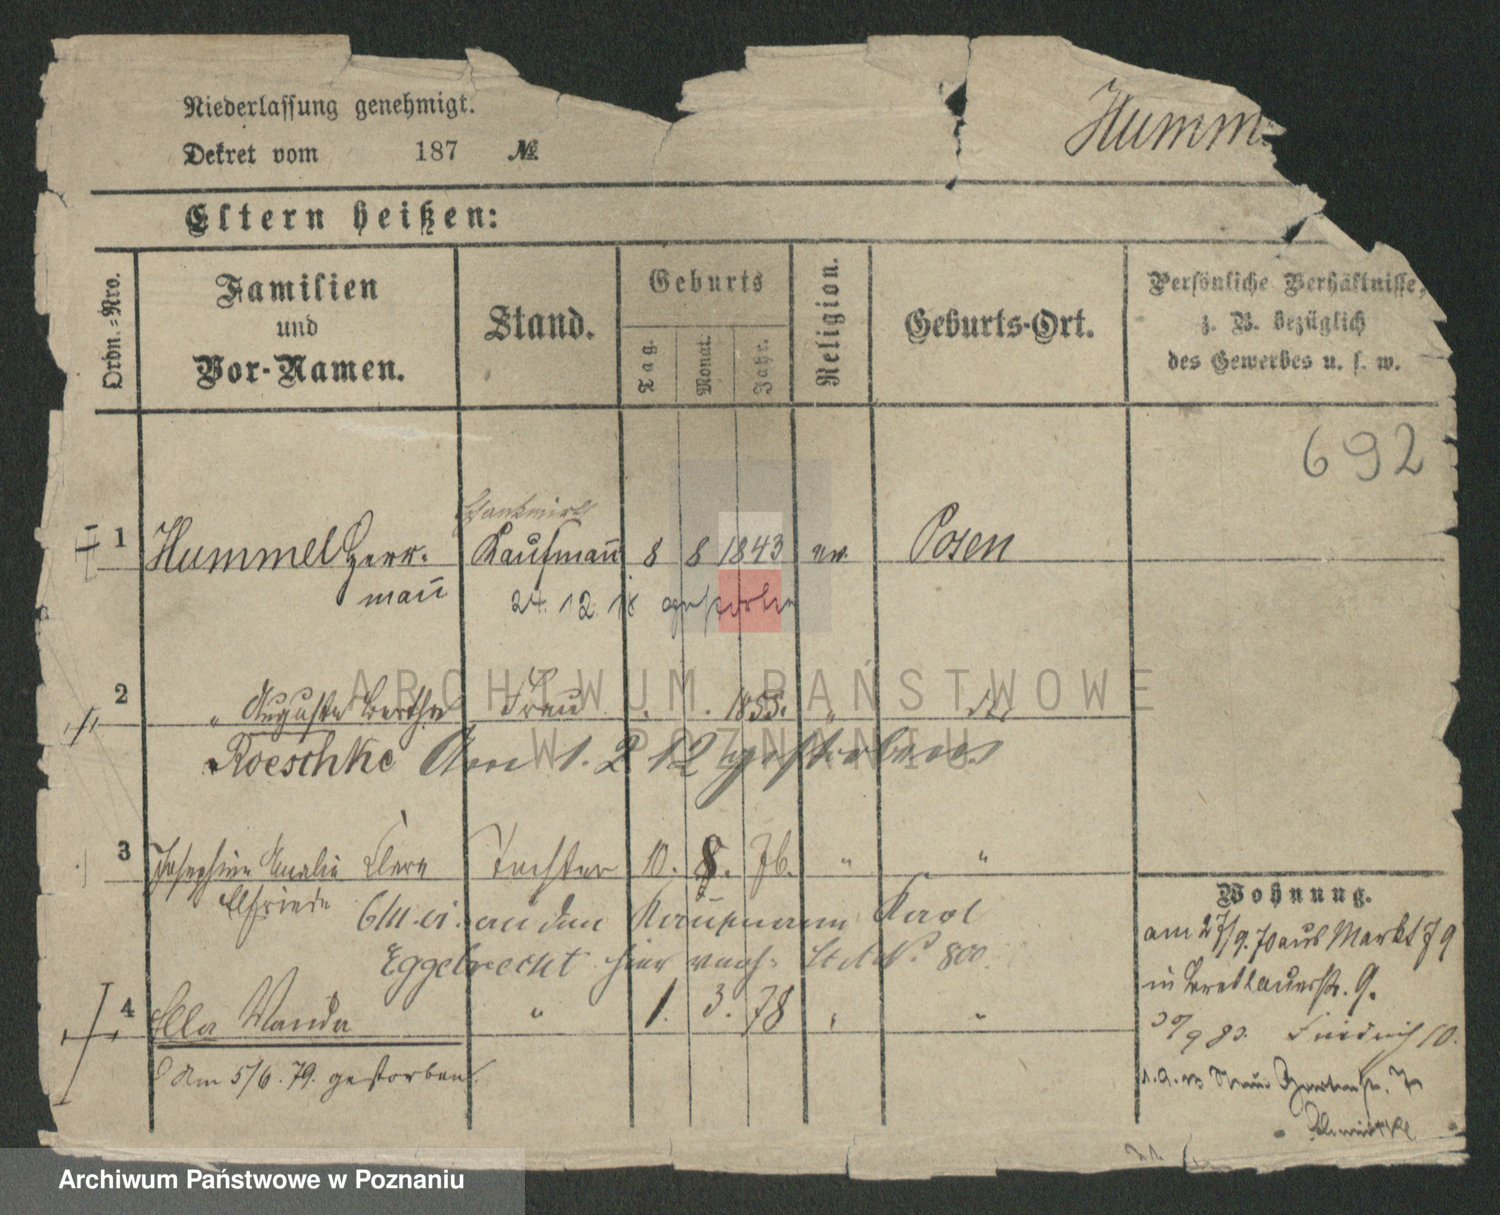 Niederlassung genehmigt.
Dekret vom 187 №
Humm
Eltern heißen:
Ordn.=Nro.
Familien
und
Vor-Namen.
Stand.
Geburts
Tag.
Monat.
Jahr.
Religion.
Geburts-Ort.
Persönliche Verhältnisse,
z. B. bezüglich
des Gewerbes u. s. w.
692
1 Hummel Herr- Kaufmañ 8 8 1843 ev. Posen
mañ 24.12.18 gestorben
2 " Auguste Bertha Frau 1855. "
Roeschke Am 1. 2 12 gestorben.
3 Josephine Amalie Clara Tochter 10. 8. 76. " "
Elfriede an den Kaufmann Karl
Eggebrecht hier 800.
4 Ella Wanda " 1. 3. 78 "
Am 5/6. 79. gestorben.
Wohnung.
am 27/9. 70 aus Markt 79
in Breslauerstr. 9.
30/9 83. Friedrich 10.
ARCHIWUM PAŃSTWOWE
W POZNANIU
Archiwum Państwowe w Poznaniu